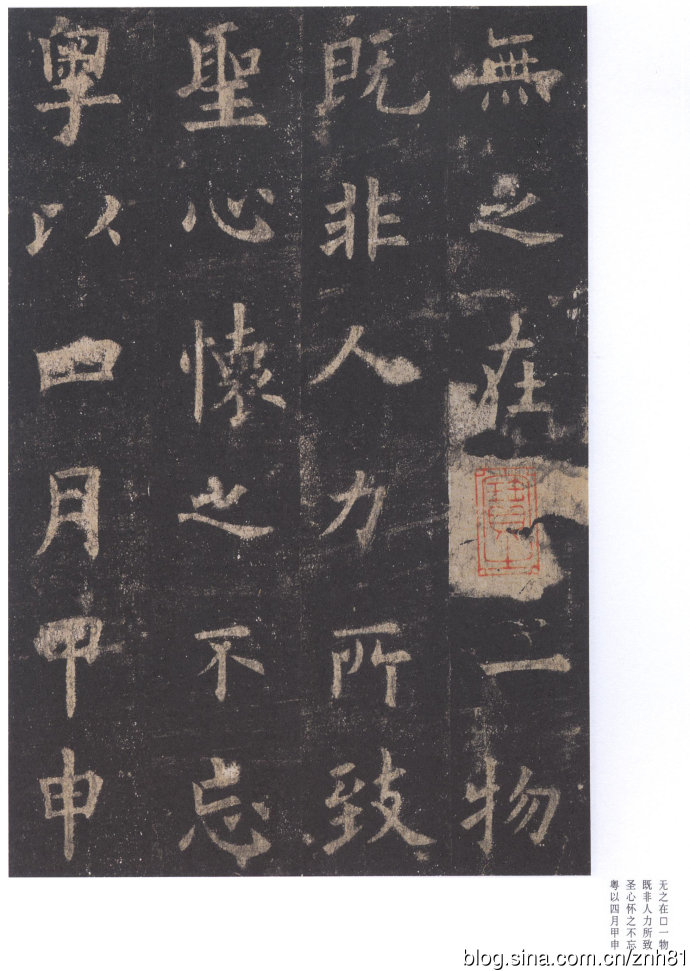 無之在一物
既非人力所致
聖心懷之不忘
粵以四月甲申
无之在□一物
既非人力所致
圣心怀之不忘
粤以四月甲申
blog.sina.com.cn/znh81